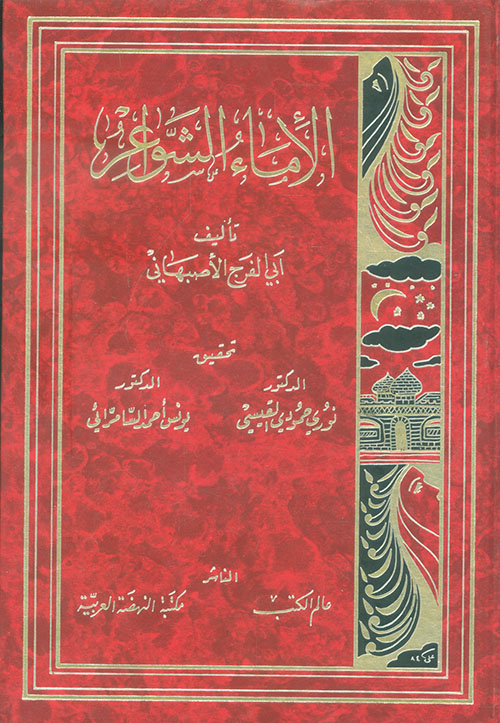 الأماءُ الشَّواعِرُ
تأليف
أبي الفرج الأصبهاني
تحقيق
الدكتور الدكتور
نوري حمودي القيسي يونس أحمد السامرائي
الناشر
عالم الكتب مكتبة النهضة العربيّة
علي ٨٤